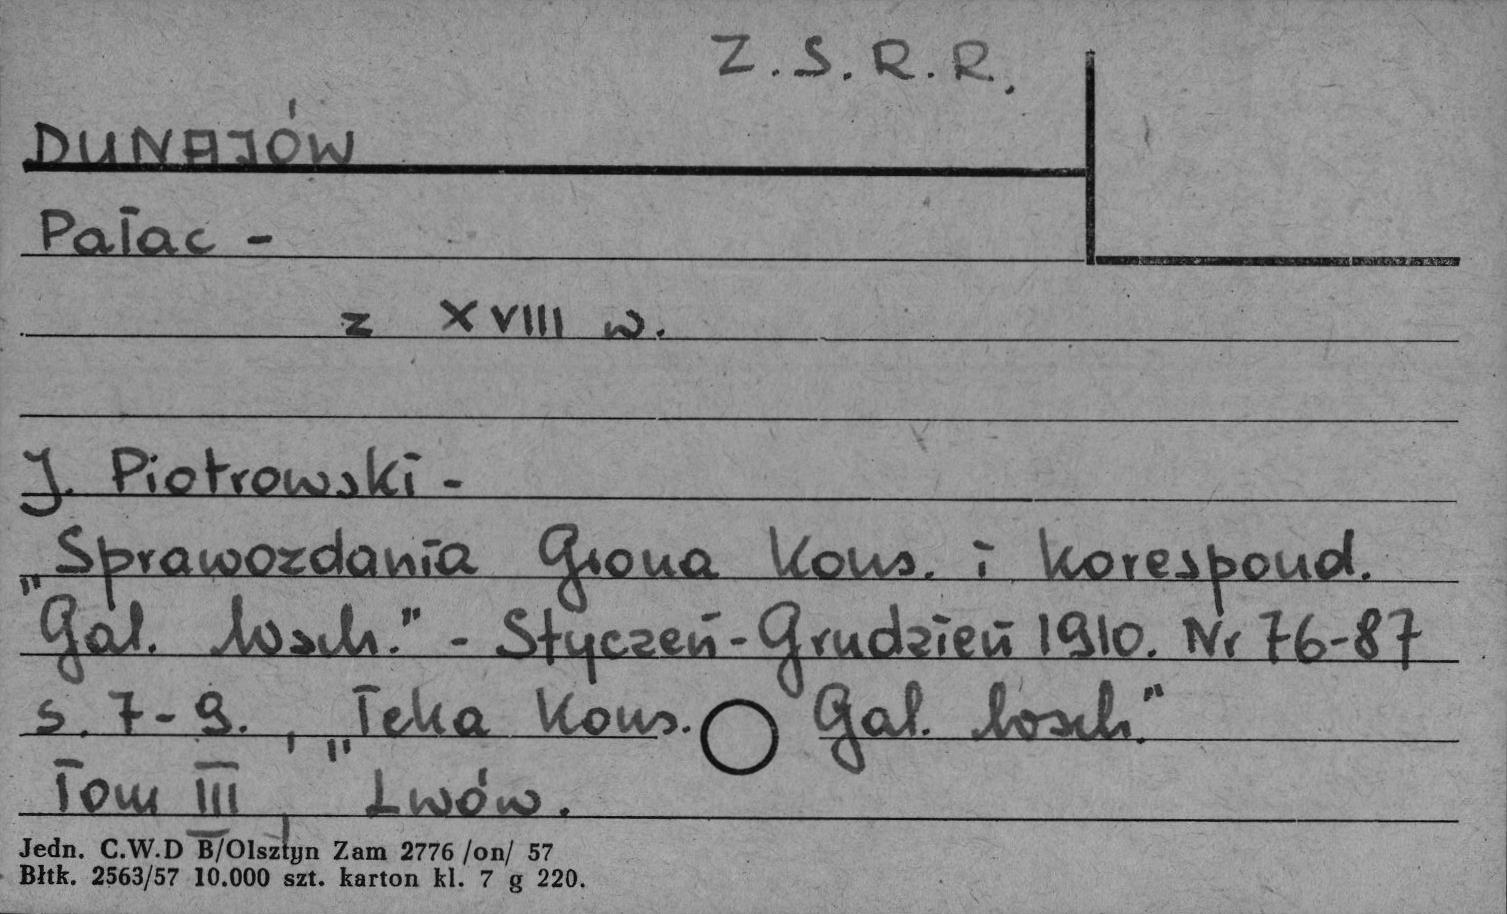 Z.S.R.R.
DUNAJÓW
Pałac -
z XVIII w.
J. Piotrowski -
„Sprawozdania Grona Kons. i korespond.
Gal. wsch.” - Styczeń - Grudzień 1910. Nr 76-87
s. 7-9. , „Teka Kons. Gal. wsch.”
Tom III, Lwów.
Jedn. C.W.D B/Olsztyn Zam 2776 /on/ 57
Błtk. 2563/57 10.000 szt. karton kl. 7 g 220.